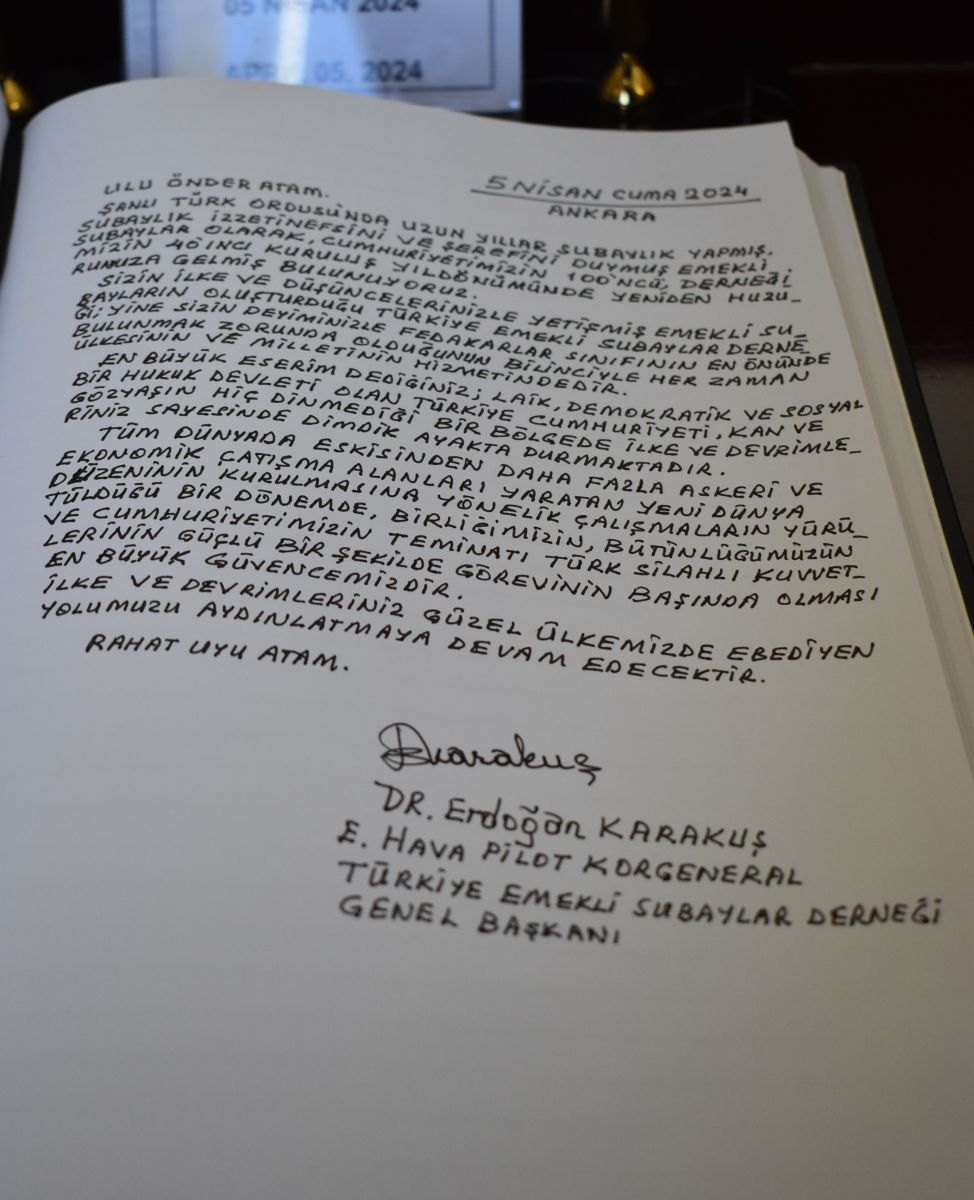 05 NİSAN 2024
APRIL 05, 2024
5 NİSAN CUMA 2024
ANKARA
ULU ÖNDER ATAM.
ŞANLI TÜRK ORDUSU'NDA UZUN YILLAR SUBAYLIK YAPMIŞ,
SUBAYLIK İZZETİNEFSİNİ VE ŞEREFİNİ DUYMUŞ EMEKLİ
SUBAYLAR OLARAK, CUMHURİYETİMİZİN 100'NCÜ, DERNEĞİ
MİZİN 40 INCI KURULUŞ YILDÖNÜMÜNDE YENİDEN HUZU_
RUNUZA GELMİŞ BULUNUYORUZ.
SİZİN İLKE VE DÜŞÜNCELERİNİZLE YETİŞMİŞ EMEKLİ SU_
BAYLARIN OLUŞTURDUĞU TÜRKİYE EMEKLİ SUBAYLAR DERNE_
Ğİ; YİNE SİZİN DEYİMİNİZLE FEDAKARLAR SINIFININ EN ÖNÜNDE
BULUNMAK ZORUNDA OLDUĞUNUN BİLİNCİYLE HER ZAMAN
ÜLKESİNİN VE MİLLETİNİN HİZMETİNDEDİR.
EN BÜYÜK ESERİM DEDİĞİNİZ; LAİK, DEMOKRATİK VE SOSYAL
BİR HUKUK DEVLETİ OLAN TÜRKİYE CUMHURİYETİ, KAN VE
GÖZYAŞIN HİÇ DİNMEDİĞİ BİR BÖLGEDE İLKE VE DEVRİMLE_
RİNİZ SAYESİNDE DİMDİK AYAKTA DURMAKTADIR.
TÜM DÜNYADA ESKİSİNDEN DAHA FAZLA ASKERİ VE
EKONOMİK ÇATIŞMA ALANLARI YARATAN YENİ DÜNYA
DÜZENİNİN KURULMASINA YÖNELİK ÇALIŞMALARIN YÜRÜ_
TÜLDÜĞÜ BİR DÖNEMDE, BİRLİĞİMİZİN, BÜTÜNLÜĞÜMÜZÜN
VE CUMHURİYETİMİZİN TEMİNATI TÜRK SİLAHLI KUVVET_
LERİNİN GÜÇLÜ BİR ŞEKİLDE GÖREVİNİN BAŞINDA OLMASI
EN BÜYÜK GÜVENCEMİZDİR.
İLKE VE DEVRİMLERİNİZ GÜZEL ÜLKEMİZDE EBEDİYEN
YOLUMUZU AYDINLATMAYA DEVAM EDECEKTİR.
RAHAT UYU ATAM.
Karakuş
DR. Erdoğan KARAKUŞ
E. HAVA PİLOT KORGENERAL
TÜRKİYE EMEKLİ SUBAYLAR DERNEĞİ
GENEL BAŞKANI